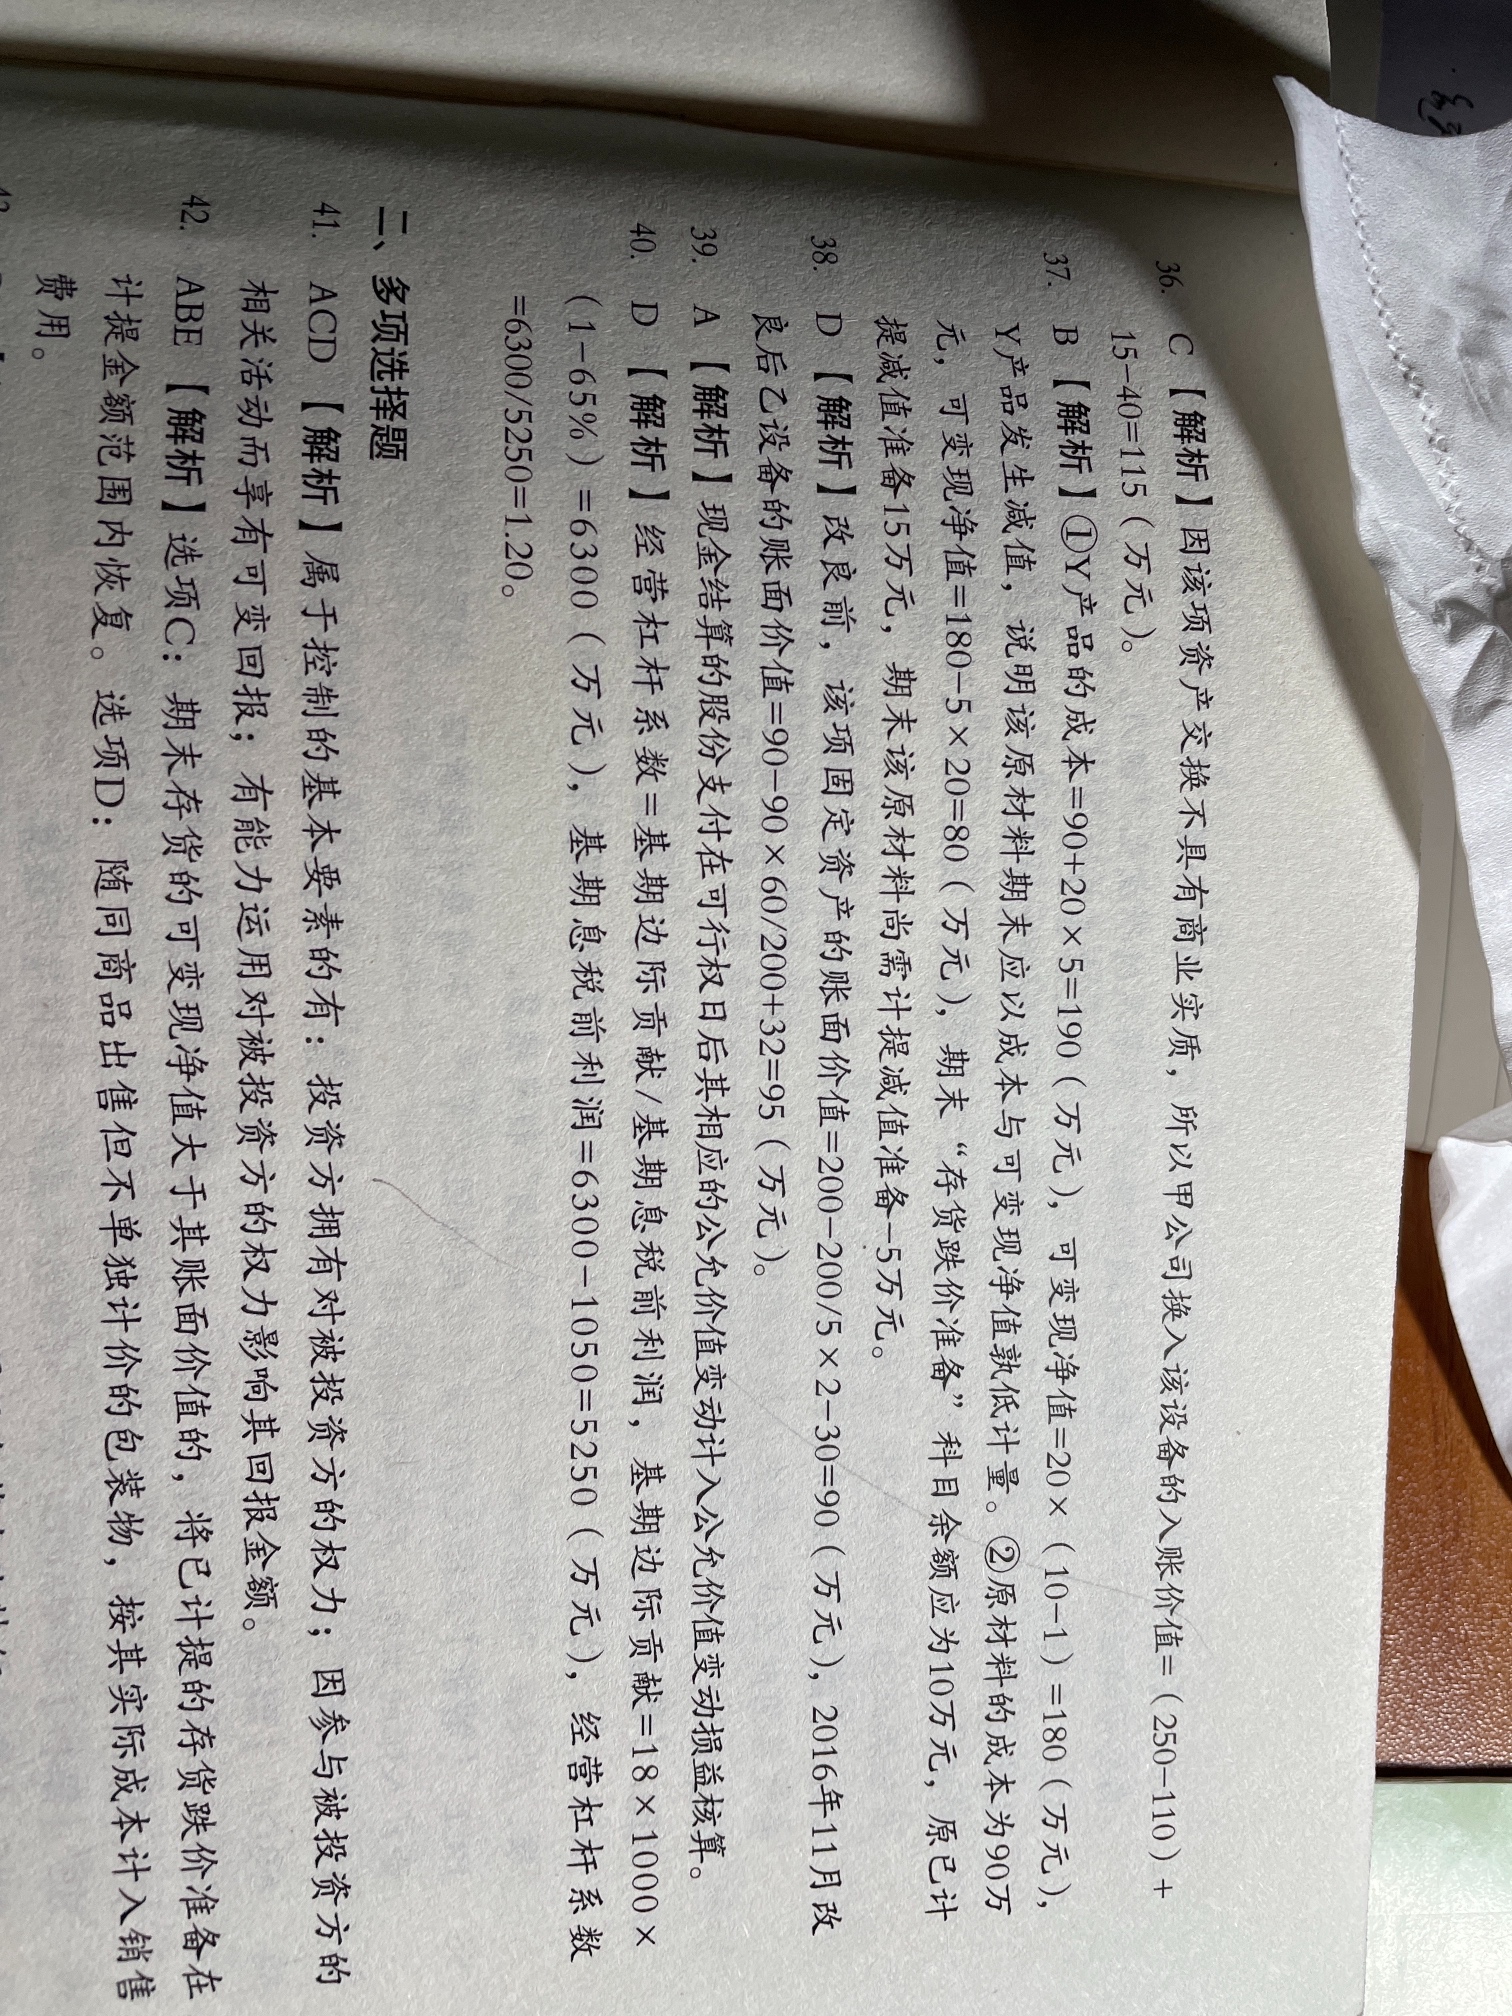 36. C 【解析】因该项资产交换不具有商业实质，所以甲公司换入该设备的入账价值=（250-110）+
15-40=115（万元）。
37. B 【解析】①Y产品的成本=90+20×5=190（万元），可变现净值=20×（10-1）=180（万元），
Y产品发生减值，说明该原材料期末应以成本与可变现净值孰低计量。②原材料的成本为90万
元，可变现净值=180-5×20=80（万元），期末“存货跌价准备”科目余额应为10万元，原已计
提减值准备15万元，期末该原材料尚需计提减值准备-5万元。
38. D 【解析】改良前，该项固定资产的账面价值=200-200/5×2-30=90（万元），2016年11月改
良后乙设备的账面价值=90-90×60/200+32=95（万元）。
39. A 【解析】现金结算的股份支付在可行权日后其相应的公允价值变动计入公允价值变动损益核算。
40. D 【解析】经营杠杆系数=基期边际贡献/基期息税前利润，基期边际贡献=18×1000×
（1-65%）=6300（万元），基期息税前利润=6300-1050=5250（万元），经营杠杆系数
=6300/5250=1.20。
二、多项选择题
41. ACD 【解析】属于控制的基本要素的有：投资方拥有对被投资方的权力；因参与被投资方的
相关活动而享有可变回报；有能力运用对被投资方的权力影响其回报金额。
42. ABE 【解析】选项C：期末存货的可变现净值大于其账面价值的，将已计提的存货跌价准备在
计提金额范围内恢复。选项D：随同商品出售但不单独计价的包装物，按其实际成本计入销售
费用。